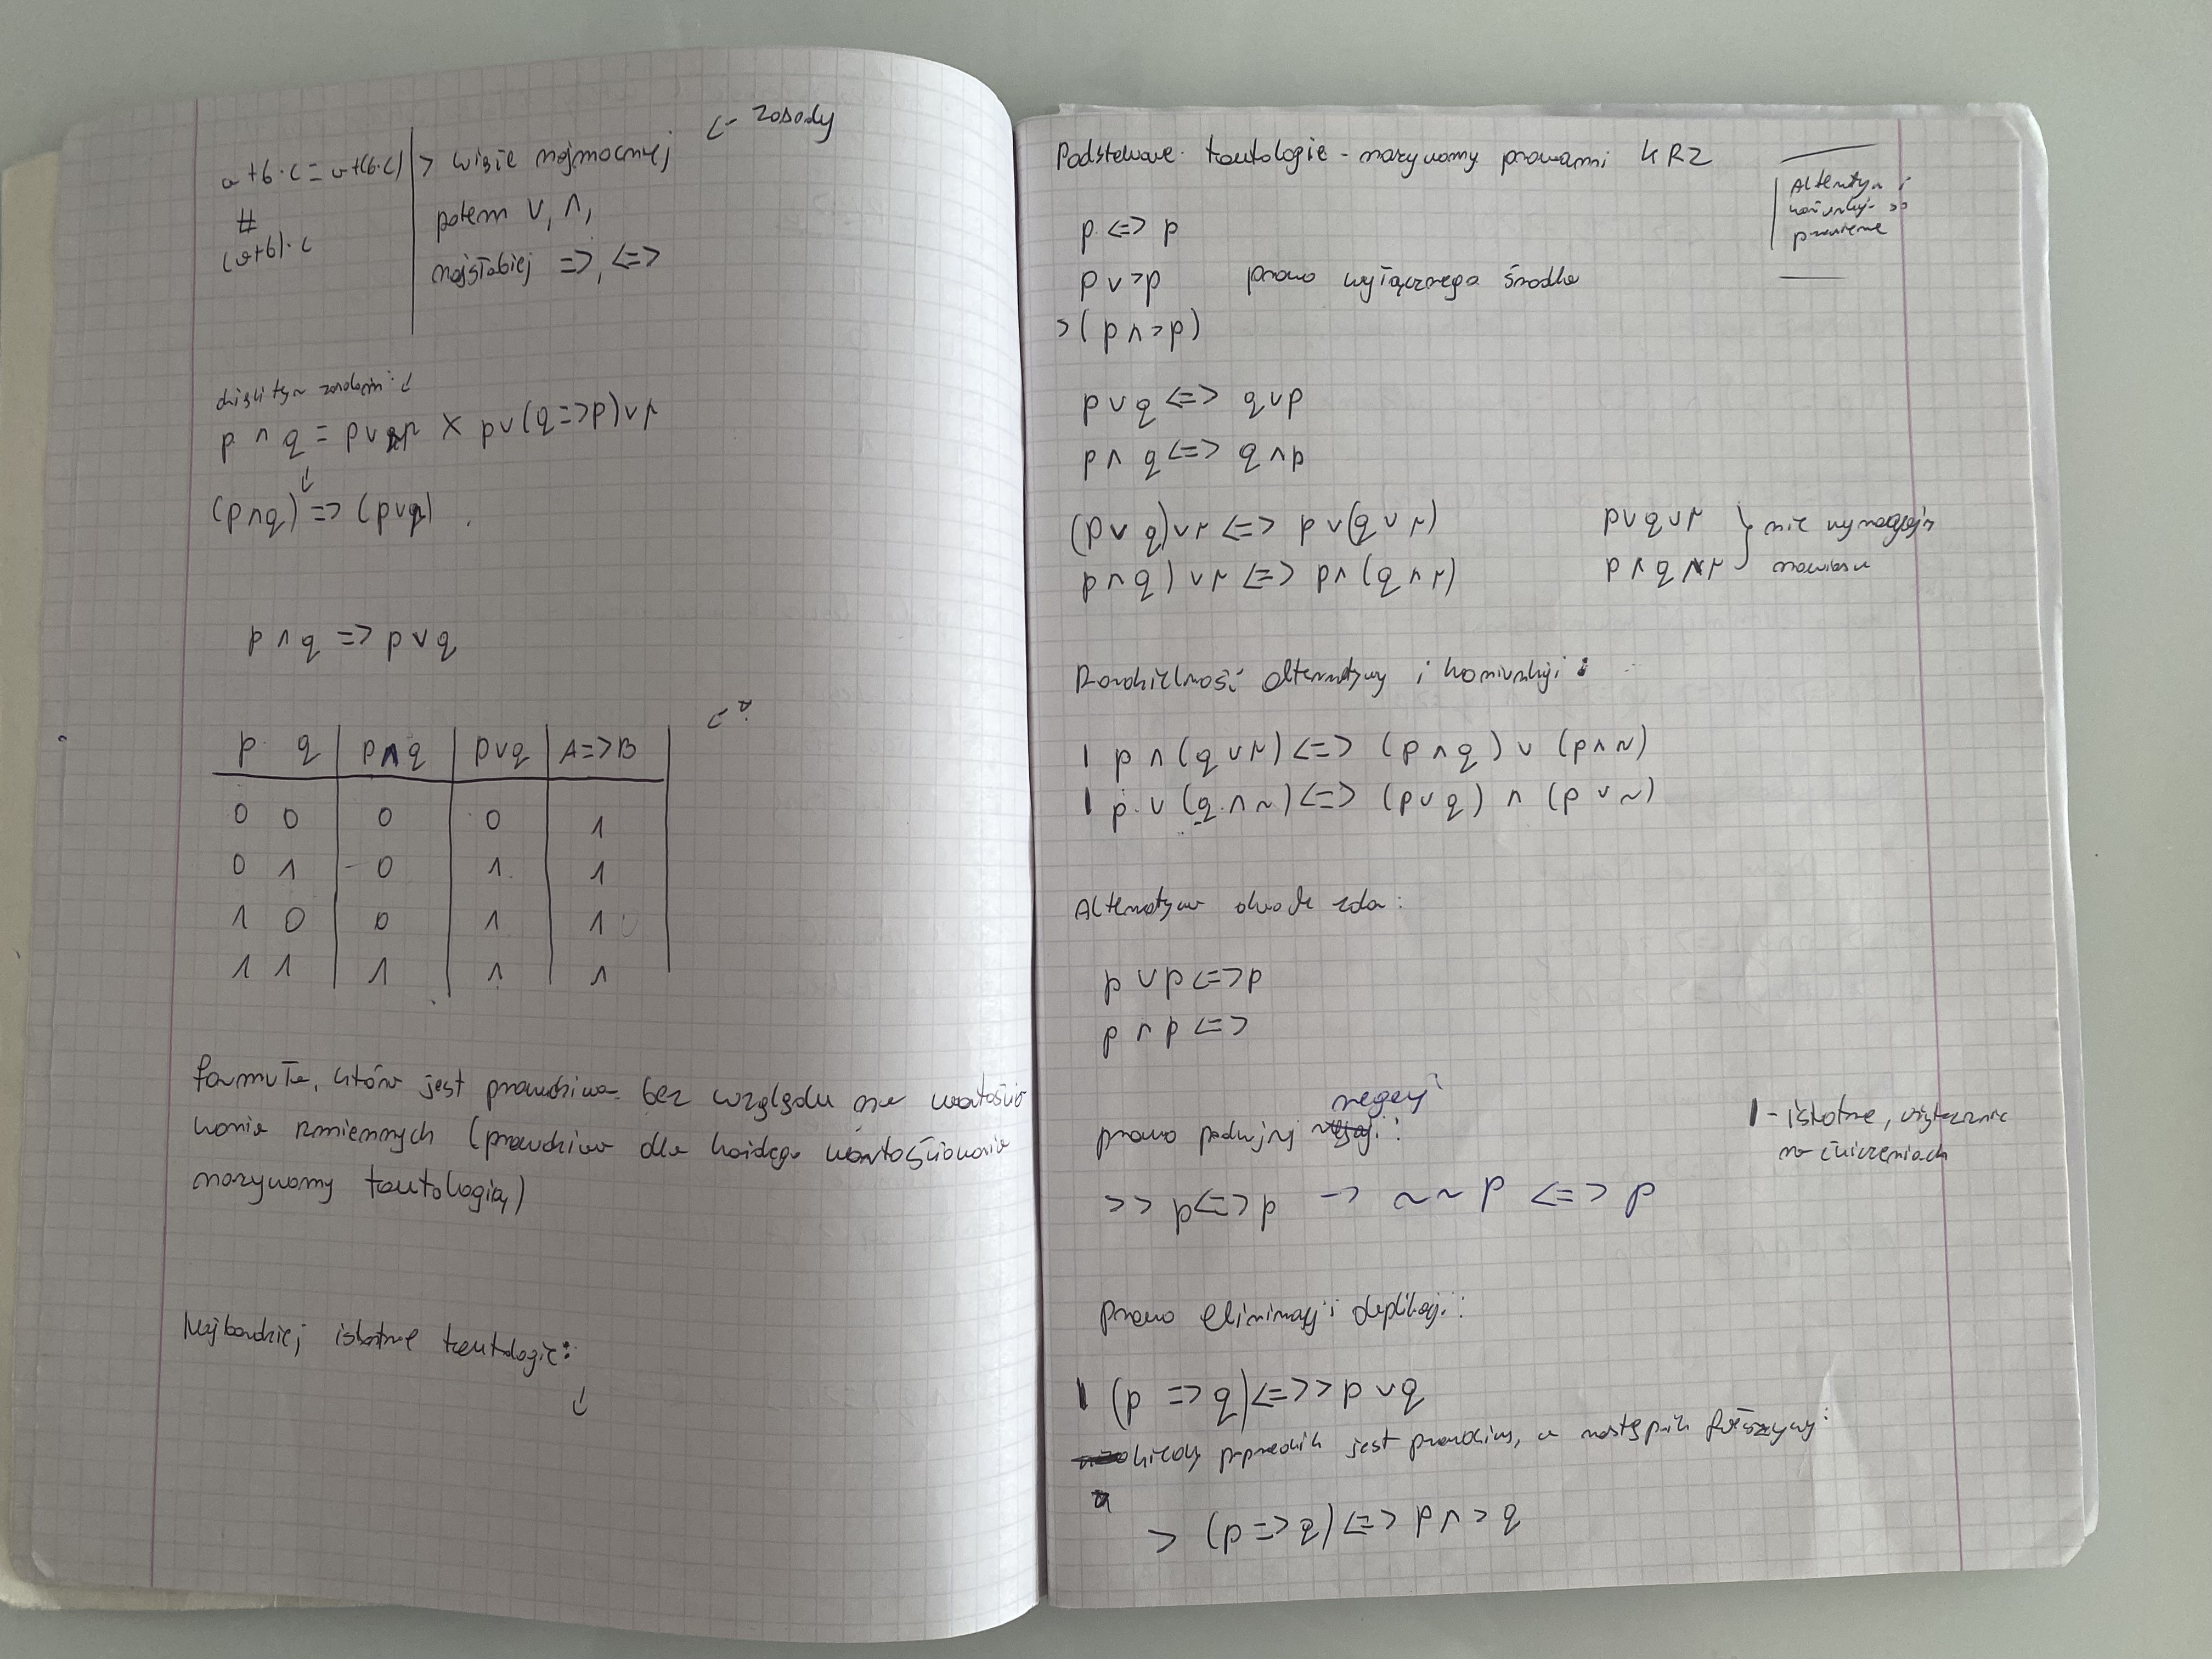 <- zasady
a+b·c = a+(b·c) > wiąże najmocniej
#
potem ∨, ∧,
(a+b)·c
najsłabiej =>, <=>
dzięki tym zasadom: ↓
p ∧ q = p∨ p × p∨(q=>p)∨r
↓
(p∧q) => (p∨q)
p ∧ q => p ∨ q
p q | p∧q | p∨q | A=>B
0 0 | 0 | 0 | 1
0 1 | 0 | 1 | 1
1 0 | 0 | 1 | 1
1 1 | 1 | 1 | 1
formuła, która jest prawdziwa bez względu na wartościo
wania zmiennych (prawdziwa dla każdego wartościowania
nazywamy tautologią)
Najbardziej istotne tautologie:
↓
Podstawowe tautologie - nazywamy prawami KRZ
Alternatywa i
koniunkcja są
przemienne
p <=> p
p ∨ >p prawo wyłącznego środka
>(p ∧ >p)
p ∨ q <=> q ∨ p
p ∧ q <=> q ∧ p
(p ∨ q)∨r <=> p ∨(q ∨ r)
p ∧ q) ∨ r <=> p∧ (q ∧ r)
p∨q∨r } nie wymagają
p∧q∧r nawiasu
Rozdzielność alternatywy i koniunkcji:
| p ∧ (q ∨ r) <=> (p ∧ q) ∨ (p ∧ r)
| p ∨ (q ∧ r) <=> (p∨q) ∧ (p ∨ r)
Alternatywa dwóch zda:
p ∨ p <=> p
p ∧ p <=>
negacji
prawo podwójnej :
>> p <=> p -> ~~p <=> p
| - istotne, użyteczne
na ćwiczeniach
prawo eliminacji implikacji:
| (p => q) <=> >p ∨ q
kiedy poprzednik jest prawdziwy, a następnik fałszywy:
> (p => q) <=> p ∧ > q